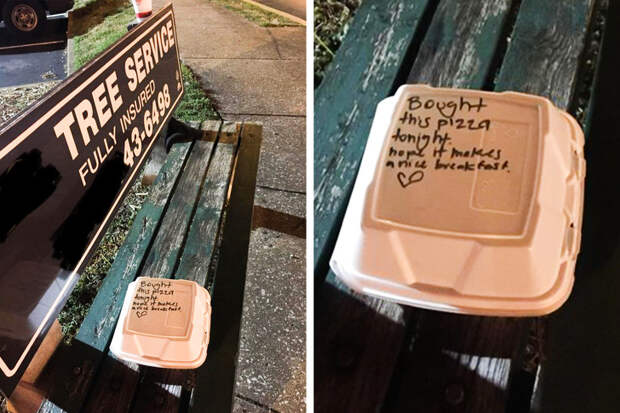 TREE SERVICE
FULLY INSURED
43-6498
Bought
this pizza
tonight.
hope it makes
a nice breakfast.
Bought
this pizza
tonight.
hope it makes
a nice breakfast.